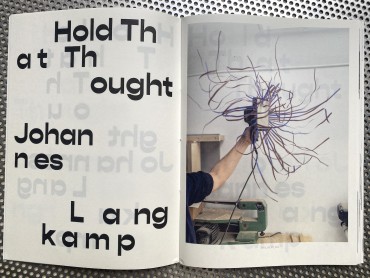 Hold Th
at Th
ought
Johan
nes
Lang
kamp